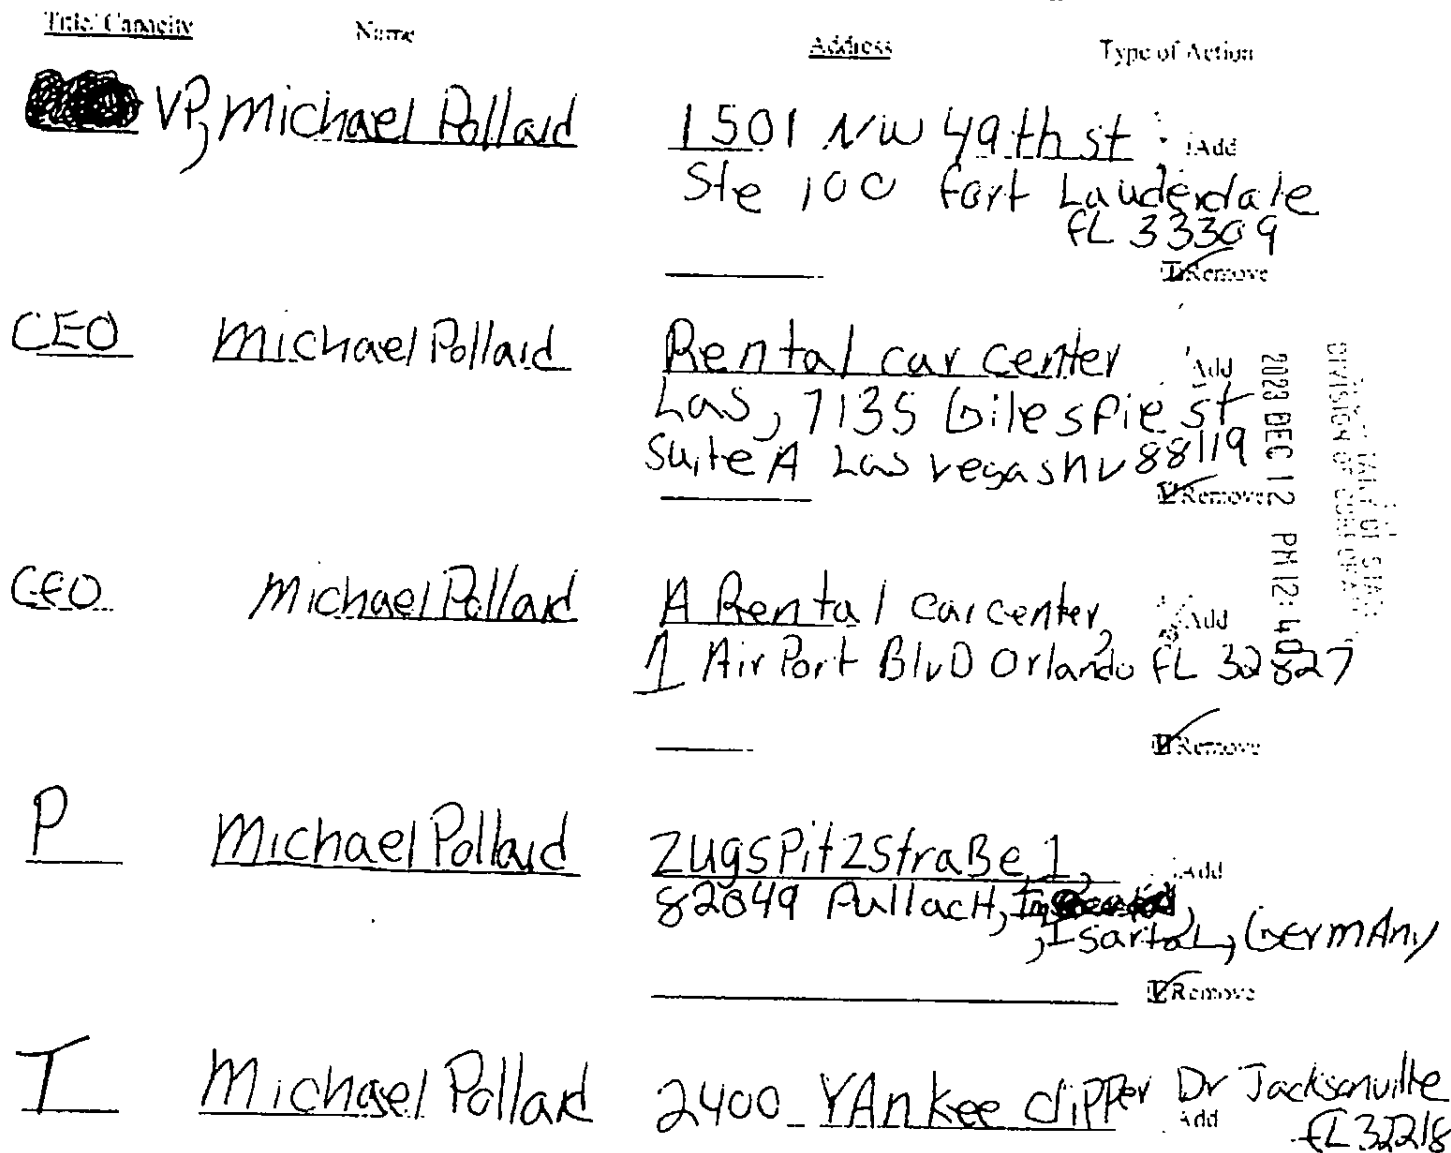 Title/ Capacity Name Address Type of Action
VP, Michael Pollard 1501 NW 49th st Add
Ste 100 fort Lauderdale
fL 33309
Remove
CEO Michael Pollard Rental car center Add
Las, 7135 Gilespie st
Suite A Las vegas nv 88119
Remove
2023 DEC 12 PM 12:40
DIVISION OF
CEO Michael Pollard A Rental car center, Add
1 Air Port BlvD Orlando FL 32827
Remove
P Michael Pollard ZugsPitzstraße 1, Add
82049 PullacH,
, Isartal, GermAny
Remove
T Michael Pollard 2400 YAnkee clipper Dr Jacksonville
Add fL 32218